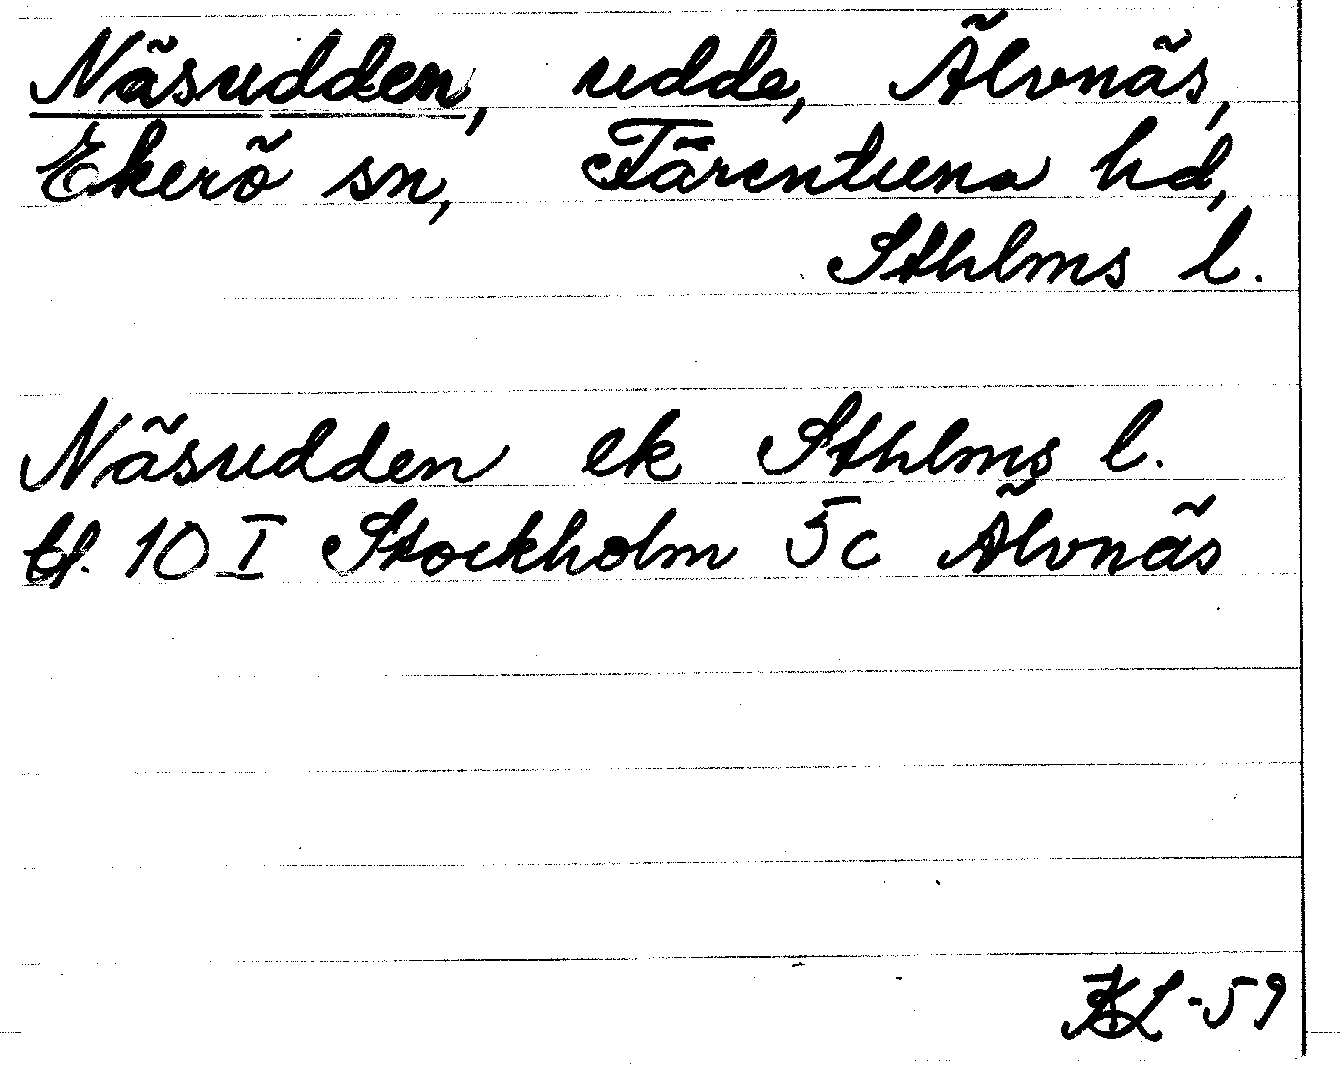 Näsudden, udde, Älvnäs,
Ekerö sn, Färentuna hd,
Sthlms l.
Näsudden ek Sthlms l.
bl. 10 I Stockholm 5c Älvnäs
-59